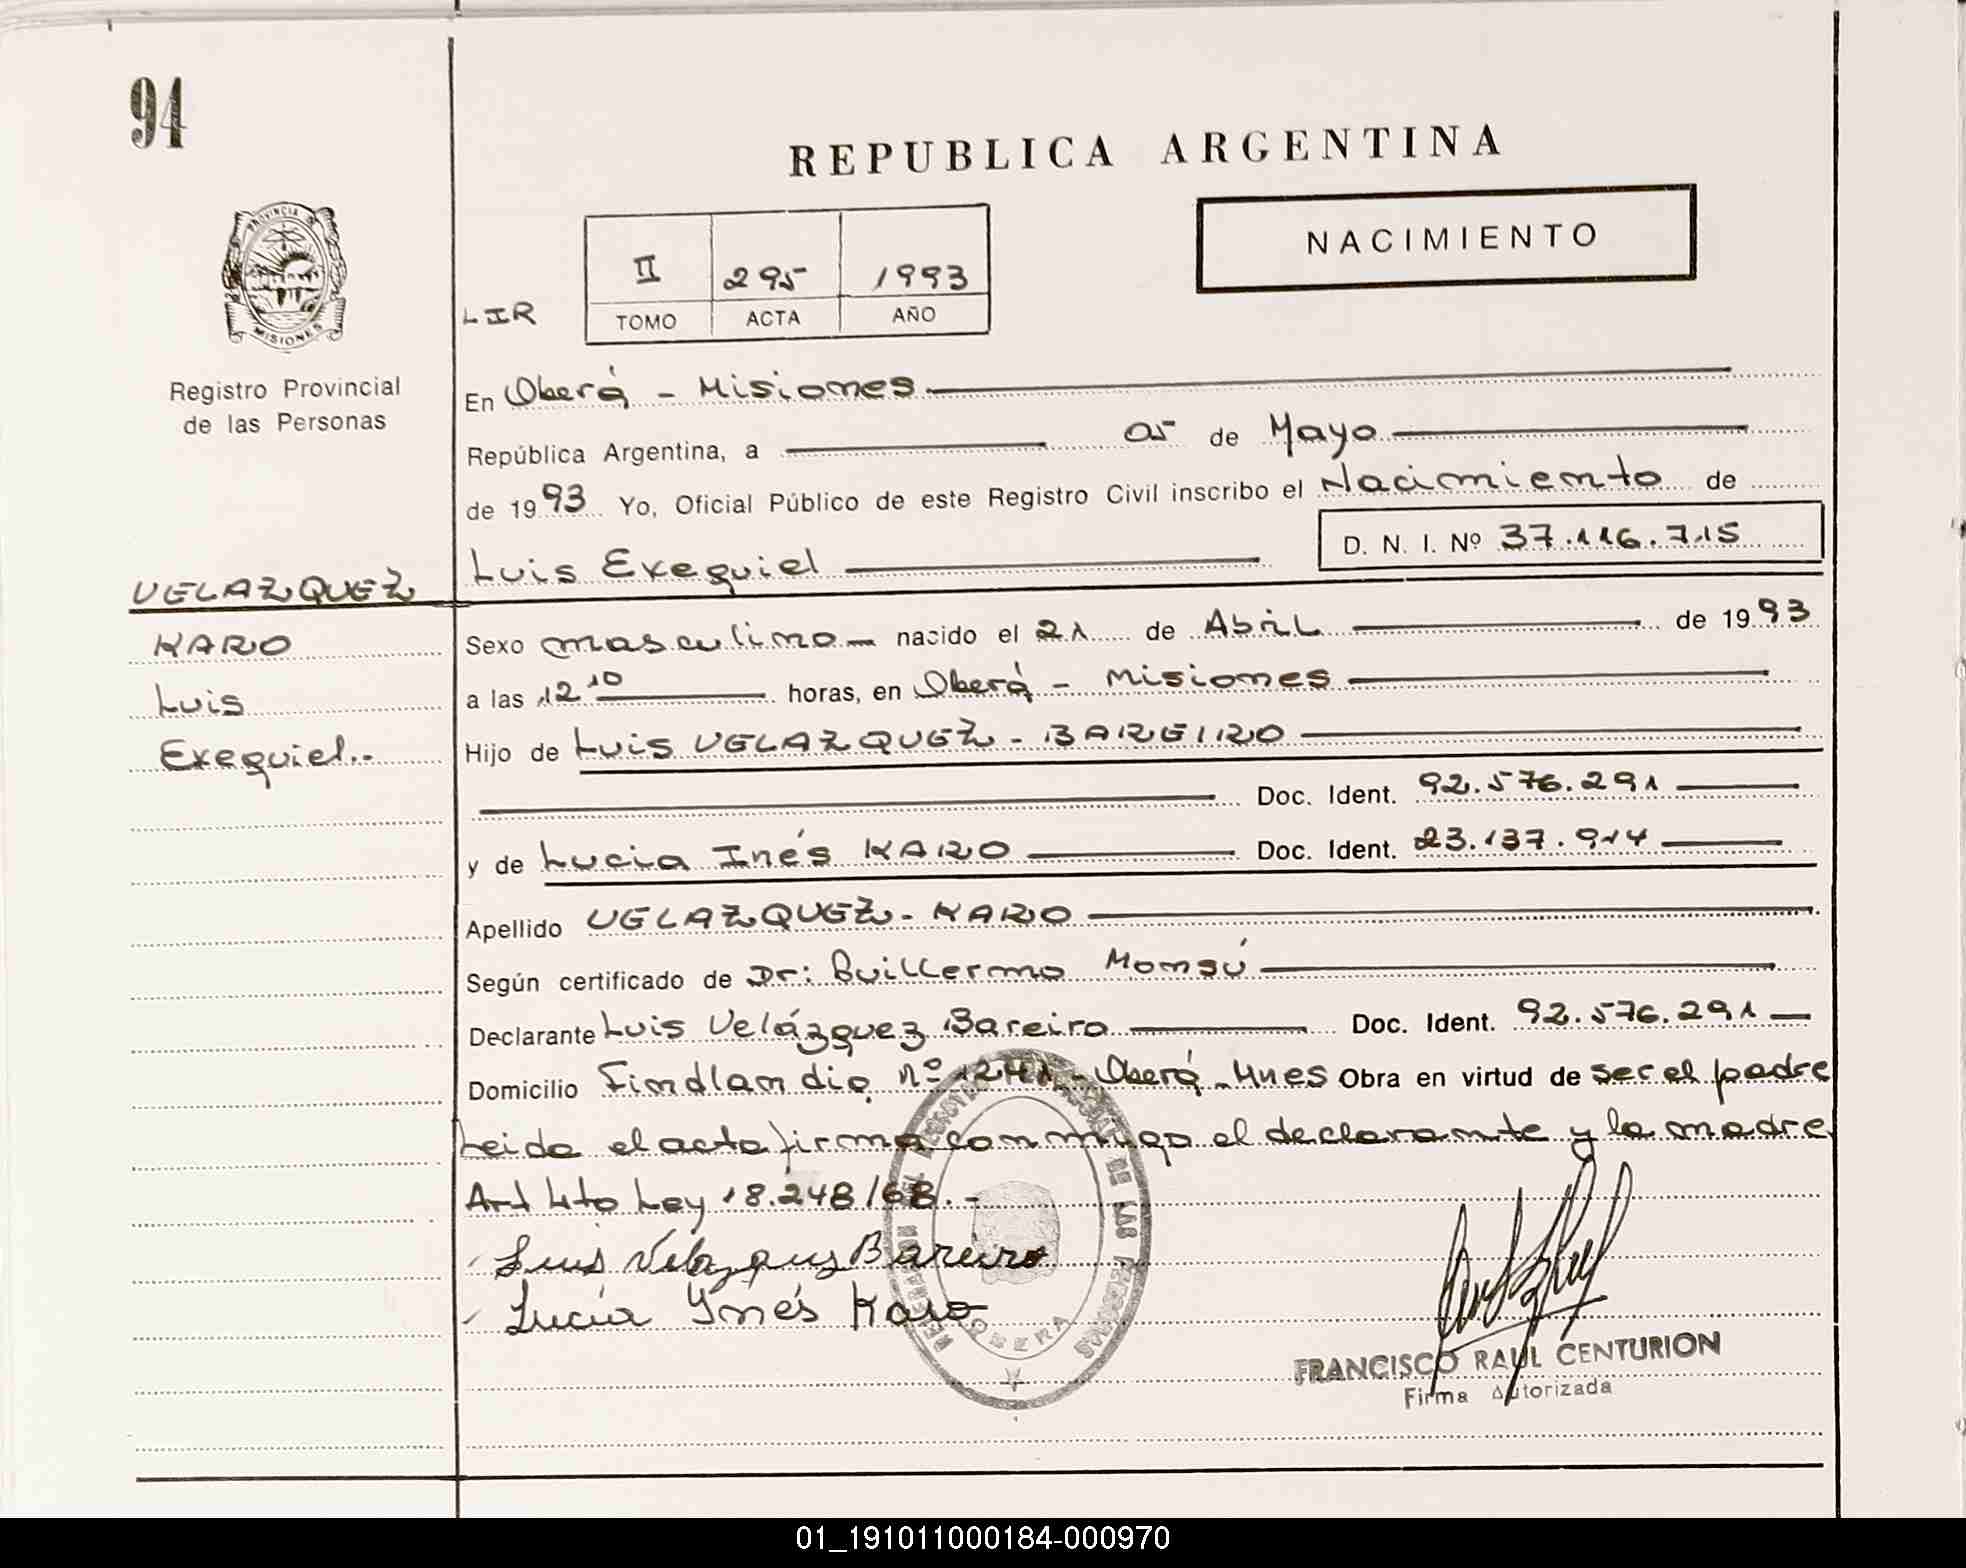 94
REPUBLICA ARGENTINA
NACIMIENTO
PROVINCIA DE
MISIONES
Registro Provincial
de las Personas
LIR
II 295 1993
TOMO ACTA AÑO
En Oberá - Misiones
República Argentina, a 05 de Mayo
de 1993 Yo, Oficial Público de este Registro Civil inscribo el Nacimiento de
D. N. I. Nº 37.116.715
Luis Exequiel
VELAZQUEZ
KARO
Luis
Exequiel.-
Sexo masculino nacido el 21 de Abril de 1993
a las 12 10 horas, en Oberá - Misiones
Hijo de Luis VELAZQUEZ - BAREIRO
Doc. Ident. 92.576.291
y de Lucia Inés KARO Doc. Ident. 23.137.914
Apellido VELAZQUEZ - KARO
Según certificado de Dr: Guillermo Monsú
Declarante Luis Velázquez Bareiro Doc. Ident. 92.576.291
Domicilio Findlandia nº 1241 - Oberá - Mnes Obra en virtud de ser el padre
Leida el acta firma conmigo el declarante y la madre
Art 4to Ley 18.248/68.-
Luis Velazquez Bareiro
Lucía Ynés Karo
DE LAS PERSONAS
OBERA
FRANCISCO RAUL CENTURION
Firma Autorizada
01_191011000184-000970